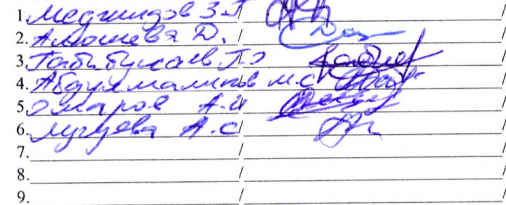 1. Меджидов З.Г /
2. Алюшева Д. /
3. Габибулаев Г.Э /
4. Абдулмаликов М.С /
5. Омаров А.И /
6. Мугуева А.С /
7. /
8. /
9. /